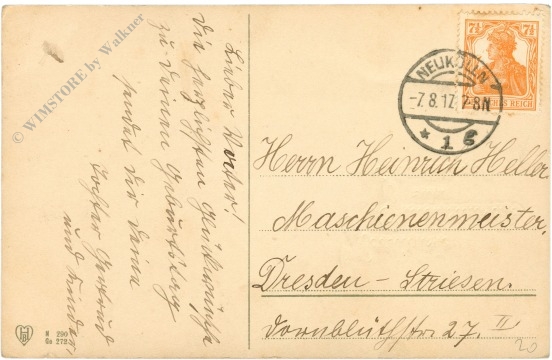 Lieber Vater!
Die herzlichsten Glückwünsche
zu Deinem Geburtstag
sendet Dir Deine
Tochter Gertrud
und Kinder.
NEUKÖLLN
-7.8.17. 7-8N
* 1 c
7½ 7½
DEUTSCHES REICH
Herrn Heinrich Heller
Maschienenmeister,
Dresden - Striesen.
Dornblüthstr 27. II
20
N 290
Gs 272
© WIMSTORE by Walkner